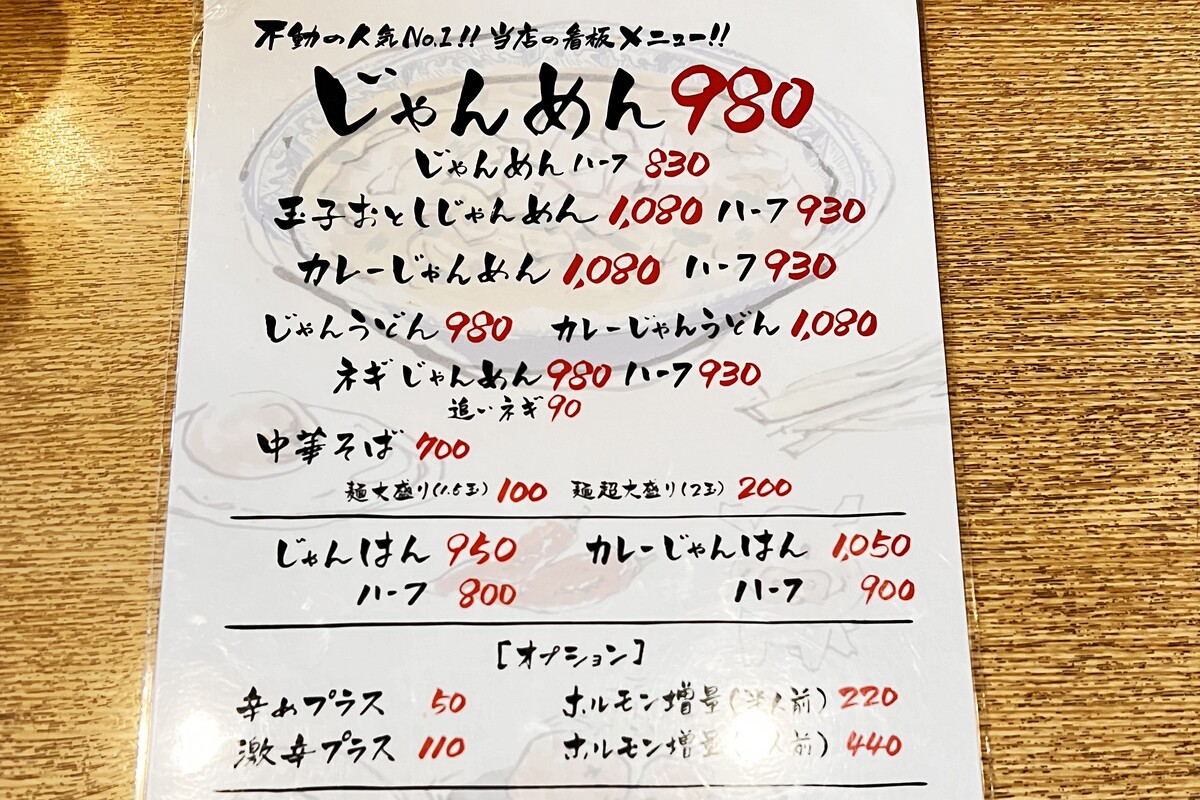 不動の人気No.1!! 当店の看板メニュー!!
じゃんめん 980
じゃんめん ハーフ 830
玉子おとしじゃんめん 1,080 ハーフ 930
カレーじゃんめん 1,080 ハーフ 930
じゃんうどん 980 カレーじゃんうどん 1,080
ネギじゃんめん 980 ハーフ 930
追いネギ 90
中華そば 700
麺大盛り(1.5玉) 100 麺超大盛り(2玉) 200
じゃんはん 950 カレーじゃんはん 1,050
ハーフ 800 ハーフ 900
[オプション]
辛めプラス 50 ホルモン増量(半人前) 220
激辛プラス 110 ホルモン増量 人前) 440